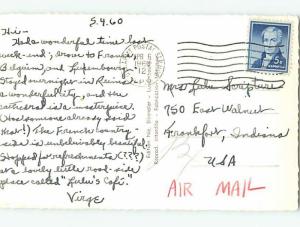 5.4.60
Hi —
Had a wonderful time last
week-end; drove to France,
Belgium, and Luxembourg.
Stayed overnight in Reims.
wonderful city, and the
cathedral is a masterpiece.
(Has someone already said
that!) The French country-
side is unbelievably beautiful.
Stopped for refreshments (???)
at a lovely little road-side
place called "Lulu's Café."
Virge
APR 6
12
5¢
Mrs. Lulu Scripture
950 East Walnut
Frankfort, Indiana
USA
AIR MAIL